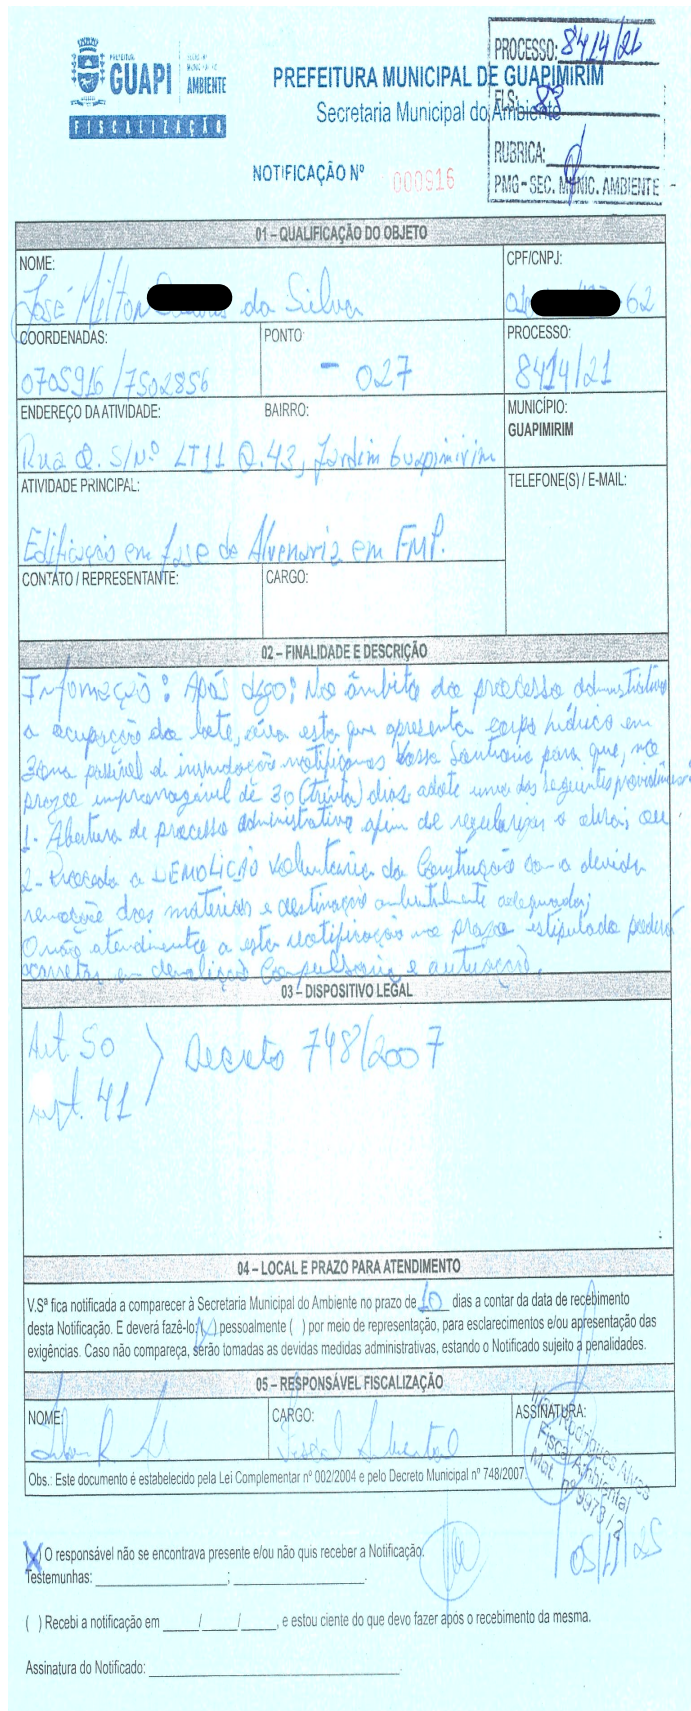 PREFEITURA
GUAPI
AMBIENTE
FISCALIZAÇÃO
PROCESSO: 8414/21
PREFEITURA MUNICIPAL DE GUAPIMIRIM
FLS: 83
Secretaria Municipal do Ambiente
RUBRICA:
NOTIFICAÇÃO Nº 000916
PMG - SEC. MUNIC. AMBIENTE
01 – QUALIFICAÇÃO DO OBJETO
NOME:
CPF/CNPJ:
José Milton da Silva
62
COORDENADAS:
PONTO
PROCESSO:
0705916/7502856
- 027
8414/21
ENDEREÇO DA ATIVIDADE:
BAIRRO:
MUNICÍPIO:
GUAPIMIRIM
Rua Q. S/Nº LT11 Q.43, Jardim Guapimirim
ATIVIDADE PRINCIPAL:
TELEFONE(S) / E-MAIL:
Edificação em fase de Alvenaria em FMP.
CONTATO / REPRESENTANTE:
CARGO:
02 – FINALIDADE E DESCRIÇÃO
Infomação: Após digo: No âmbito do processo administrativo
a ocupação do lote, área esta que apresenta corpo hídrico em
zona passível de inundação notificamos Vossa Senhoria para que, no
prazo improrrogável de 30 (trinta) dias, adote uma das seguintes providências
1- Abertura de processo administrativo afim de regularizar a obra; ou
2- Proceda a DEMOLIÇÃO Voluntária da Construção com a devida
remoção dos materiais e destinação ambientalmente adequada;
O não atendimento a esta notificação no prazo estipulado poderá
acarretar em demolição Compulsória e autuação.
03 – DISPOSITIVO LEGAL
Art. 50
Decreto 748/2007
Art. 41
04 – LOCAL E PRAZO PARA ATENDIMENTO
V.Sª fica notificada a comparecer à Secretaria Municipal do Ambiente no prazo de 10 dias a contar da data de recebimento
desta Notificação. E deverá fazê-lo: (X) pessoalmente ( ) por meio de representação, para esclarecimentos e/ou apresentação das
exigências. Caso não compareça, serão tomadas as devidas medidas administrativas, estando o Notificado sujeito a penalidades.
05 – RESPONSÁVEL FISCALIZAÇÃO
NOME:
CARGO:
ASSINATURA:
Fiscal Ambiental
Rodrigues Alves
Fiscal Ambiental
Mat. nº 9978/2
Obs.: Este documento é estabelecido pela Lei Complementar nº 002/2004 e pelo Decreto Municipal nº 748/2007.
05/11/25
(X) O responsável não se encontrava presente e/ou não quis receber a Notificação.
Testemunhas: ____________________; ____________________.
( ) Recebi a notificação em _____/_____/_____, e estou ciente do que devo fazer após o recebimento da mesma.
Assinatura do Notificado: ____________________